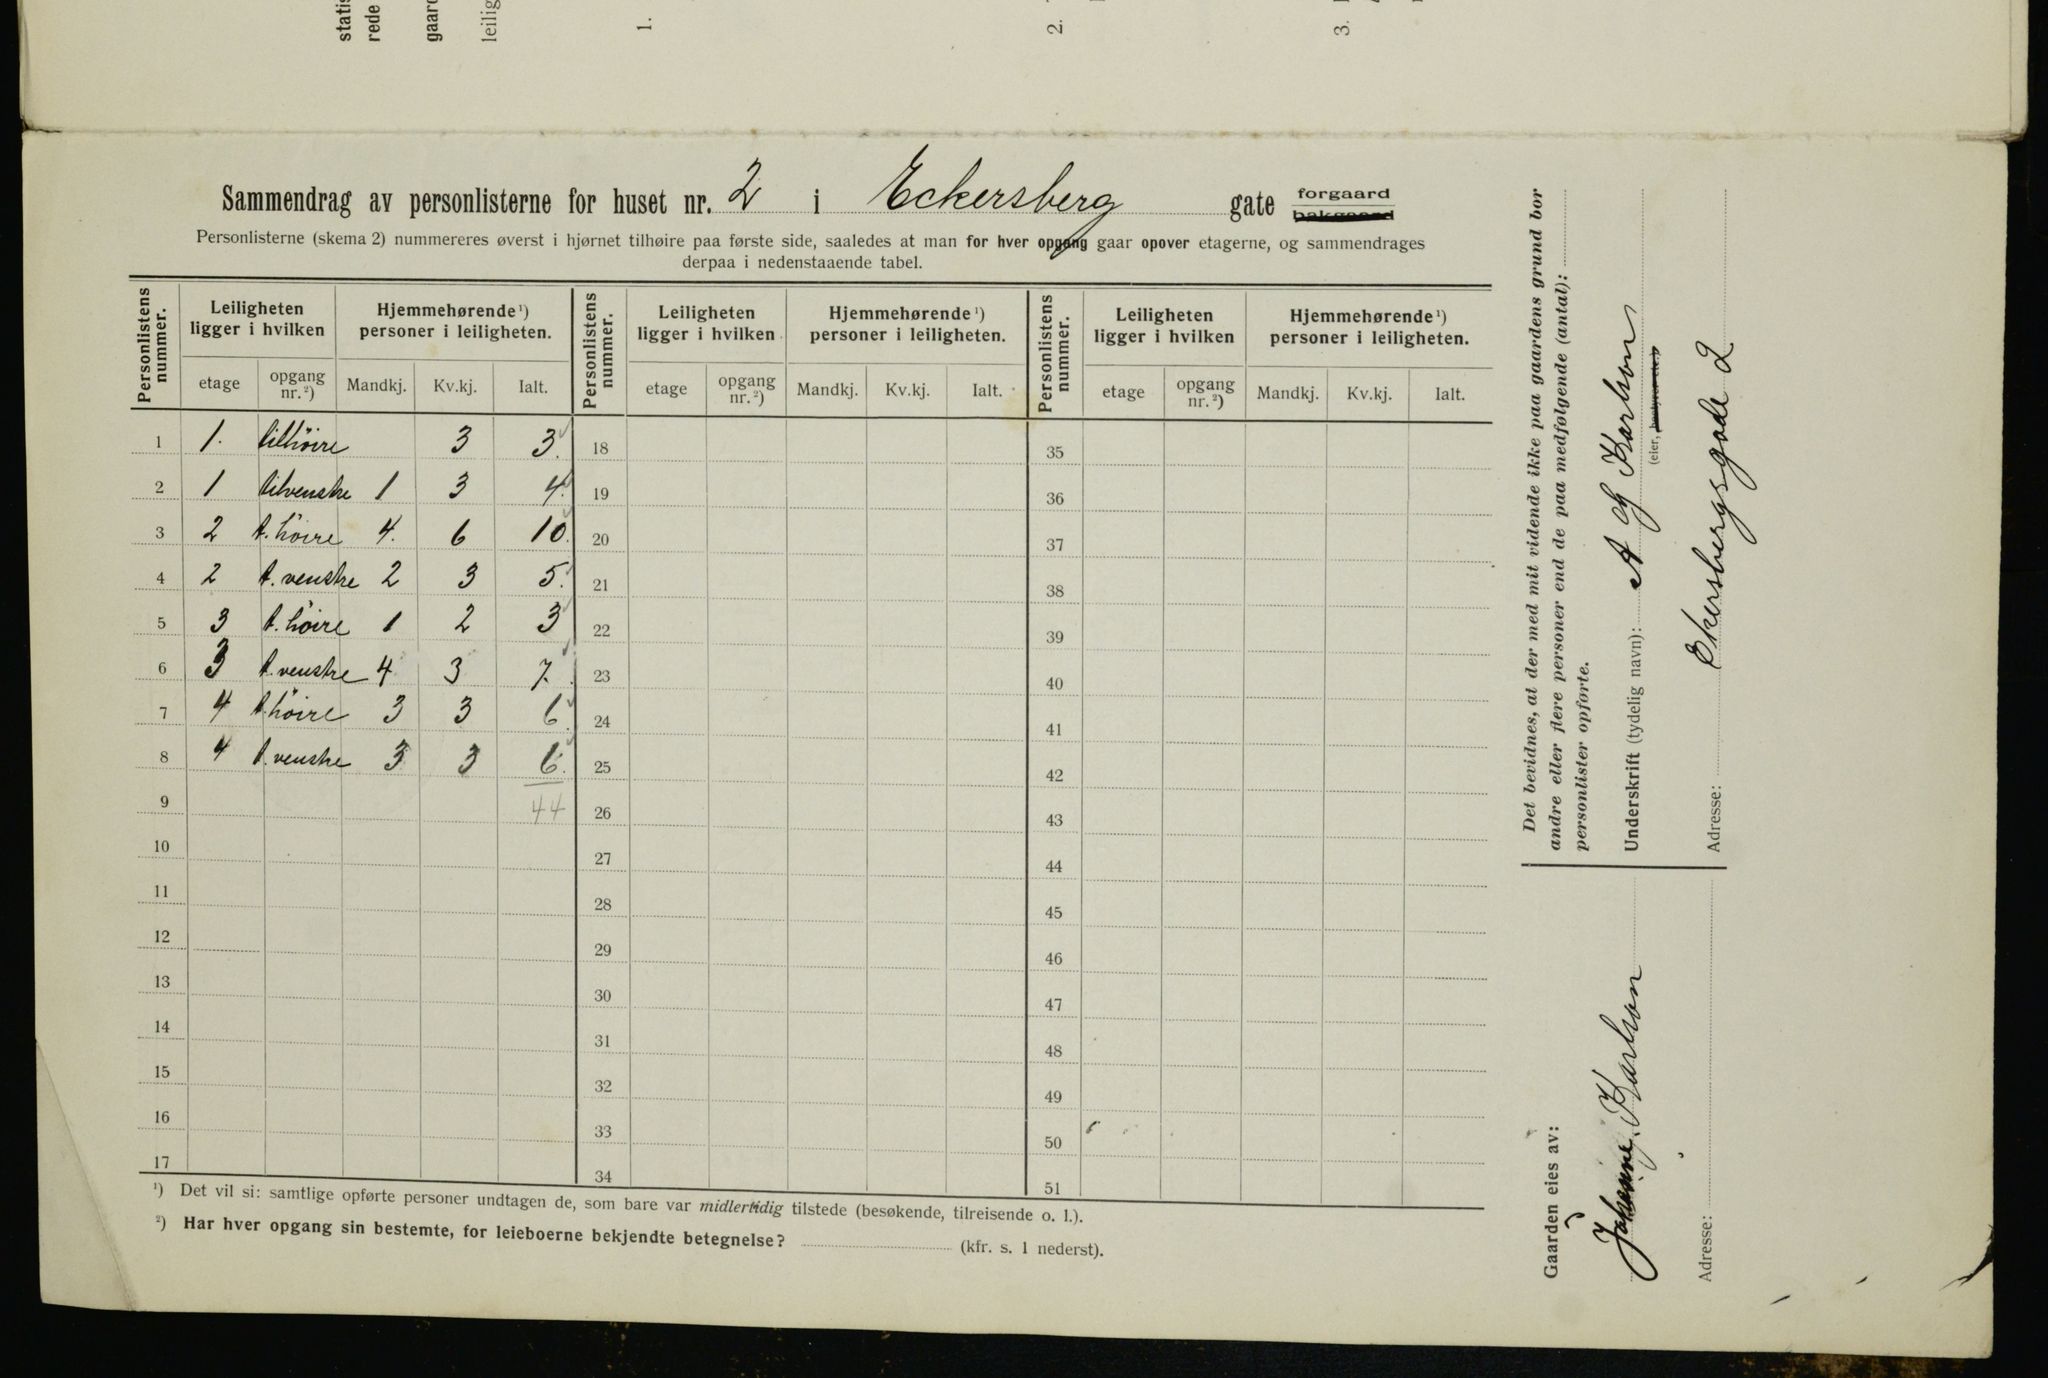 statis
rede
gaard
leilig
1.
2.
3.
Sammendrag av personlisterne for huset nr. 2 i Eckersberg gate forgaard bakgaard
Personlisterne (skema 2) nummereres øverst i hjørnet tilhøire paa første side, saaledes at man for hver opgang gaar opover etagerne, og sammendrages
derpaa i nedenstaaende tabel.
Personlistens nummer. Leiligheten ligger i hvilken Hjemmehørende ¹) personer i leiligheten. Personlistens nummer. Leiligheten ligger i hvilken Hjemmehørende ¹) personer i leiligheten. Personlistens nummer. Leiligheten ligger i hvilken Hjemmehørende ¹) personer i leiligheten.
etage opgang nr. ²) Mandkj. Kv.kj. Ialt. etage opgang nr. ²) Mandkj. Kv.kj. Ialt. etage opgang nr. ²) Mandkj. Kv.kj. Ialt.
1 1. tilhöire 3 3. 18 35
2 1 tilvenstre 1 3 4. 19 36
3 2 t. höire 4. 6 10. 20 37
4 2 t. venstre 2 3 5. 21 38
5 3 t. höire 1 2 3 22 39
6 3 t. venstre 4 3 7. 23 40
7 4 t. höire 3 3 6 24 41
8 4 t. venstre 3 3 6. 25 42
9 44 26 43
10 27 44
11 28 45
12 29 46
13 30 47
14 31 48
15 32 49
16 33 50
17 34 51
¹) Det vil si: samtlige opførte personer undtagen de, som bare var midlertidig tilstede (besøkende, tilreisende o. l.).
²) Har hver opgang sin bestemte, for leieboerne bekjendte betegnelse? (kfr. s. 1 nederst).
Det bevidnes, at der med mit vidende ikke paa gaardens grund bor
andre eller flere personer end de paa medfølgende (antal):
personlister opførte.
Underskrift (tydelig navn): A Karlson
(eier, bestyrer etc.)
Adresse: Ekersbergsgade 2
Gaarden eies av:
Karlson
Adresse: